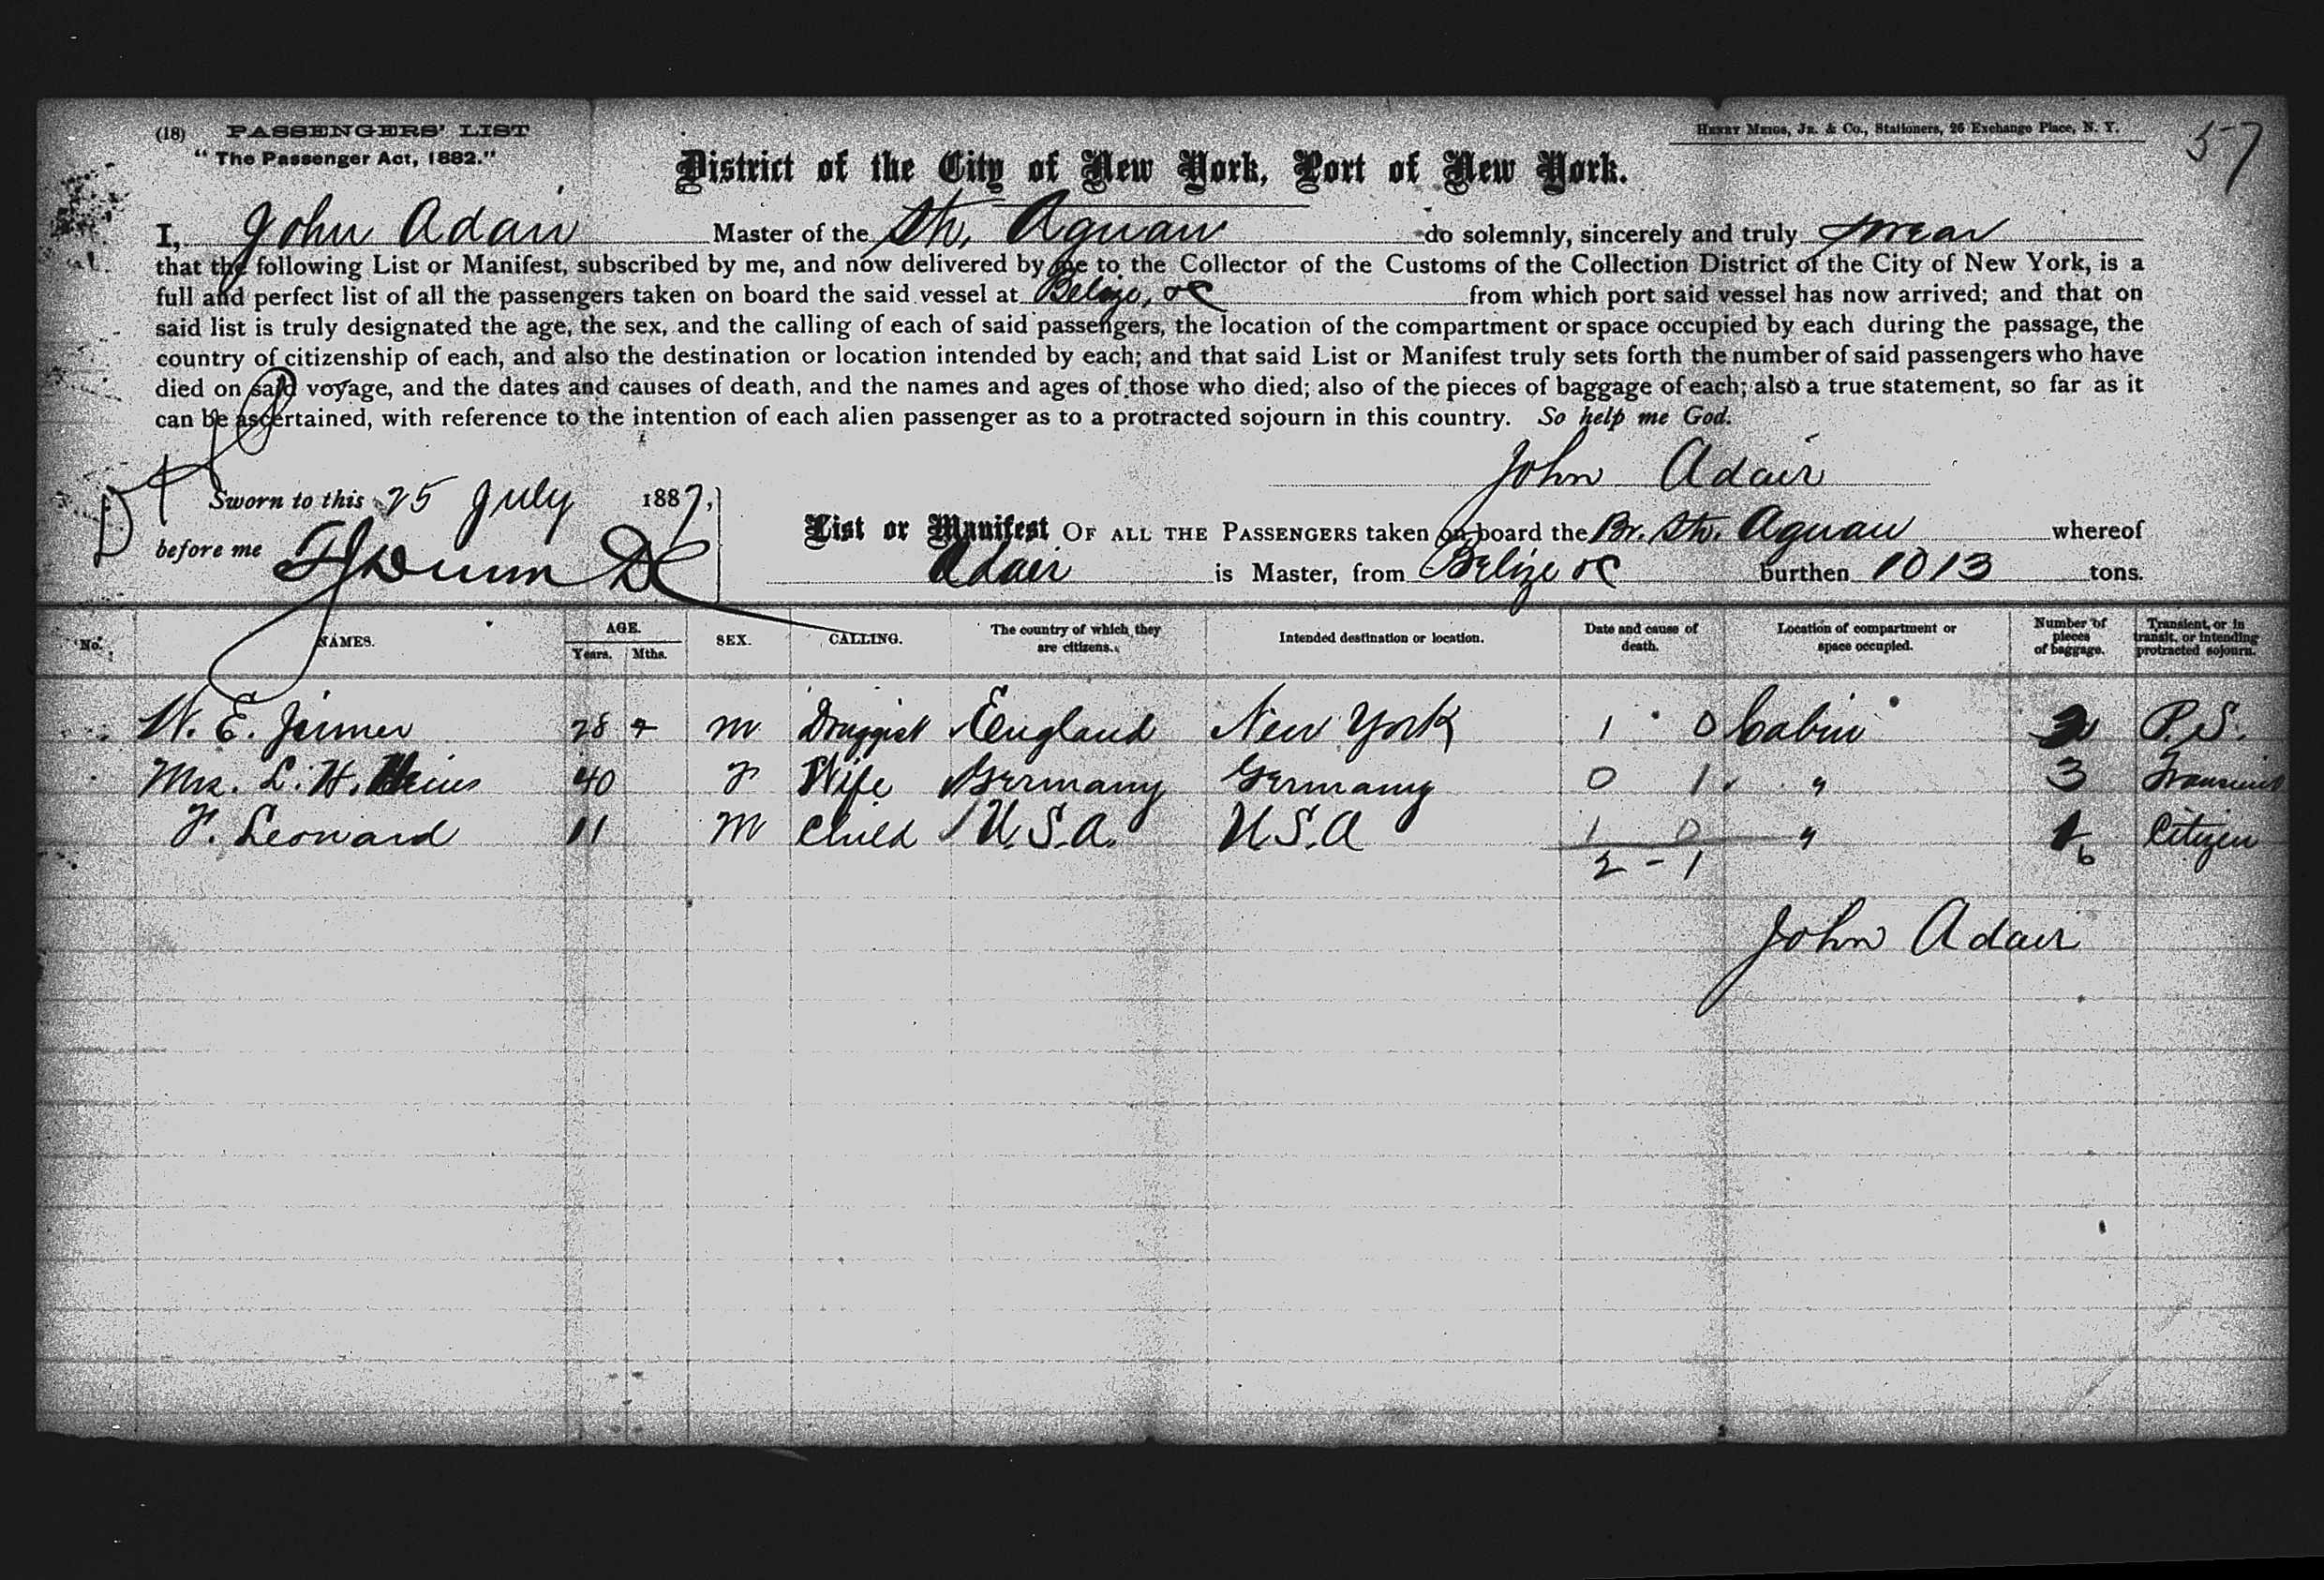 (18) PASSENGERS' LIST
"The Passenger Act, 1882."
HENRY MEIGS, JR. & Co., Stationers, 26 Exchange Place, N. Y.
57
District of the City of New York, Port of New York.
I, John Adair Master of the Str. Aguan do solemnly, sincerely and truly swear
that the following List or Manifest, subscribed by me, and now delivered by me to the Collector of the Customs of the Collection District of the City of New York, is a
full and perfect list of all the passengers taken on board the said vessel at Belize, &c from which port said vessel has now arrived; and that on
said list is truly designated the age, the sex, and the calling of each of said passengers, the location of the compartment or space occupied by each during the passage, the
country of citizenship of each, and also the destination or location intended by each; and that said List or Manifest truly sets forth the number of said passengers who have
died on said voyage, and the dates and causes of death, and the names and ages of those who died; also of the pieces of baggage of each; also a true statement, so far as it
can be ascertained, with reference to the intention of each alien passenger as to a protracted sojourn in this country. So help me God.
John Adair
Sworn to this 25 July 1887,
before me Dunn DC
List or Manifest OF ALL THE PASSENGERS taken on board the Br. Str. Aguan whereof
Adair is Master, from Belize &c burthen 1013 tons.
No. NAMES. AGE. Years. Mths. SEX. CALLING. The country of which they are citizens. Intended destination or location. Date and cause of death. Location of compartment or space occupied. Number of pieces of baggage. Transient, or in transit, or intending protracted sojourn.
W. E. 28 M Druggist England New York 1 0 Cabin 2 P.S.
Mrs. L. H. 40 F Wife Germany Germany 0 1 " 3 Transient
F. Leonard 11 M Child U.S.A. U.S.A 1 0 " 1 Citizen
2 - 1 6
John Adair